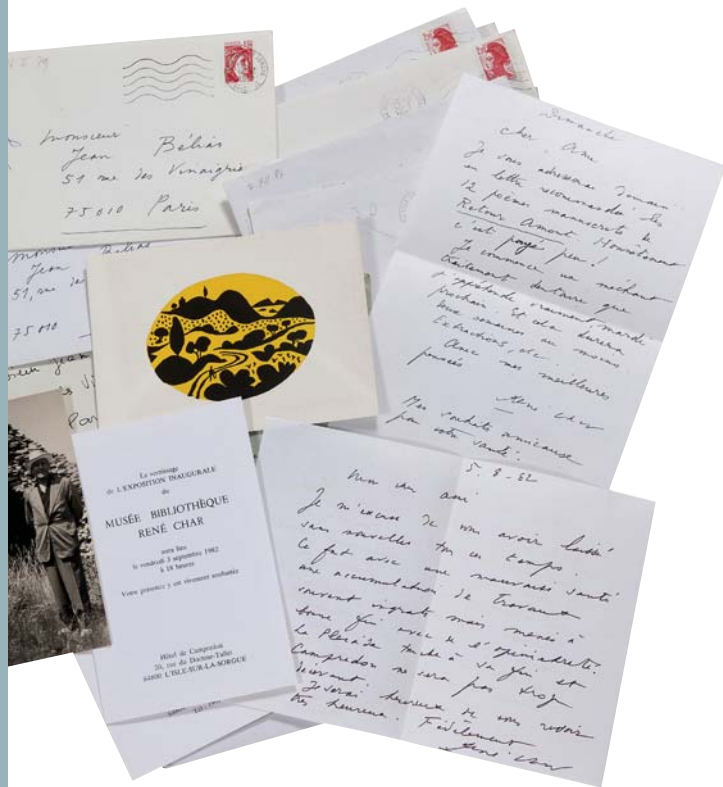 Monsieur
Jean Bélias
51 rue des Vinaigrie
75010 Paris
Monsieur
Jean Bélias
51, rue des
75010
Jean
Par
La vernissage
de L'EXPOSITION INAUGURALE
du
MUSÉE BIBLIOTHÈQUE
RENÉ CHAR
aura lieu
le vendredi 3 septembre 1982
à 18 heures
Votre présence y est vivement souhaitée
Hôtel de Campredon
20, rue du Docteur-Tallet
84800 L'ISLE-SUR-LA-SORGUE
Dimanche
Cher Ami
Je vous adresserai demain
en lettre recommandée les
12 poèmes manuscrits de
Retour Amont.
c'est payé peu !
Je commence un méchant
traitement dentaire que
j'appréhende vraiment, mardi
prochain. Et cela durera
deux semaines au moins
Extractions, etc.
Avec mes meilleures
pensées
René Char
Mes souhaits amicaux
pour votre santé.
5. 8. 82
Mon cher ami.
Je m'excuse de vous avoir laissé
sans nouvelles tous ces temps.
Ce fut avec une mauvaise santé
une accumulation de travaux
souvent ingrats mais menés à
bonne fin avec de l'opiniâtreté.
La Pléiade touche à sa fin et
Campredon ne sera pas trop
décevant
Je serai heureux de vous revoir
très heureux. Fidèlement
René Char